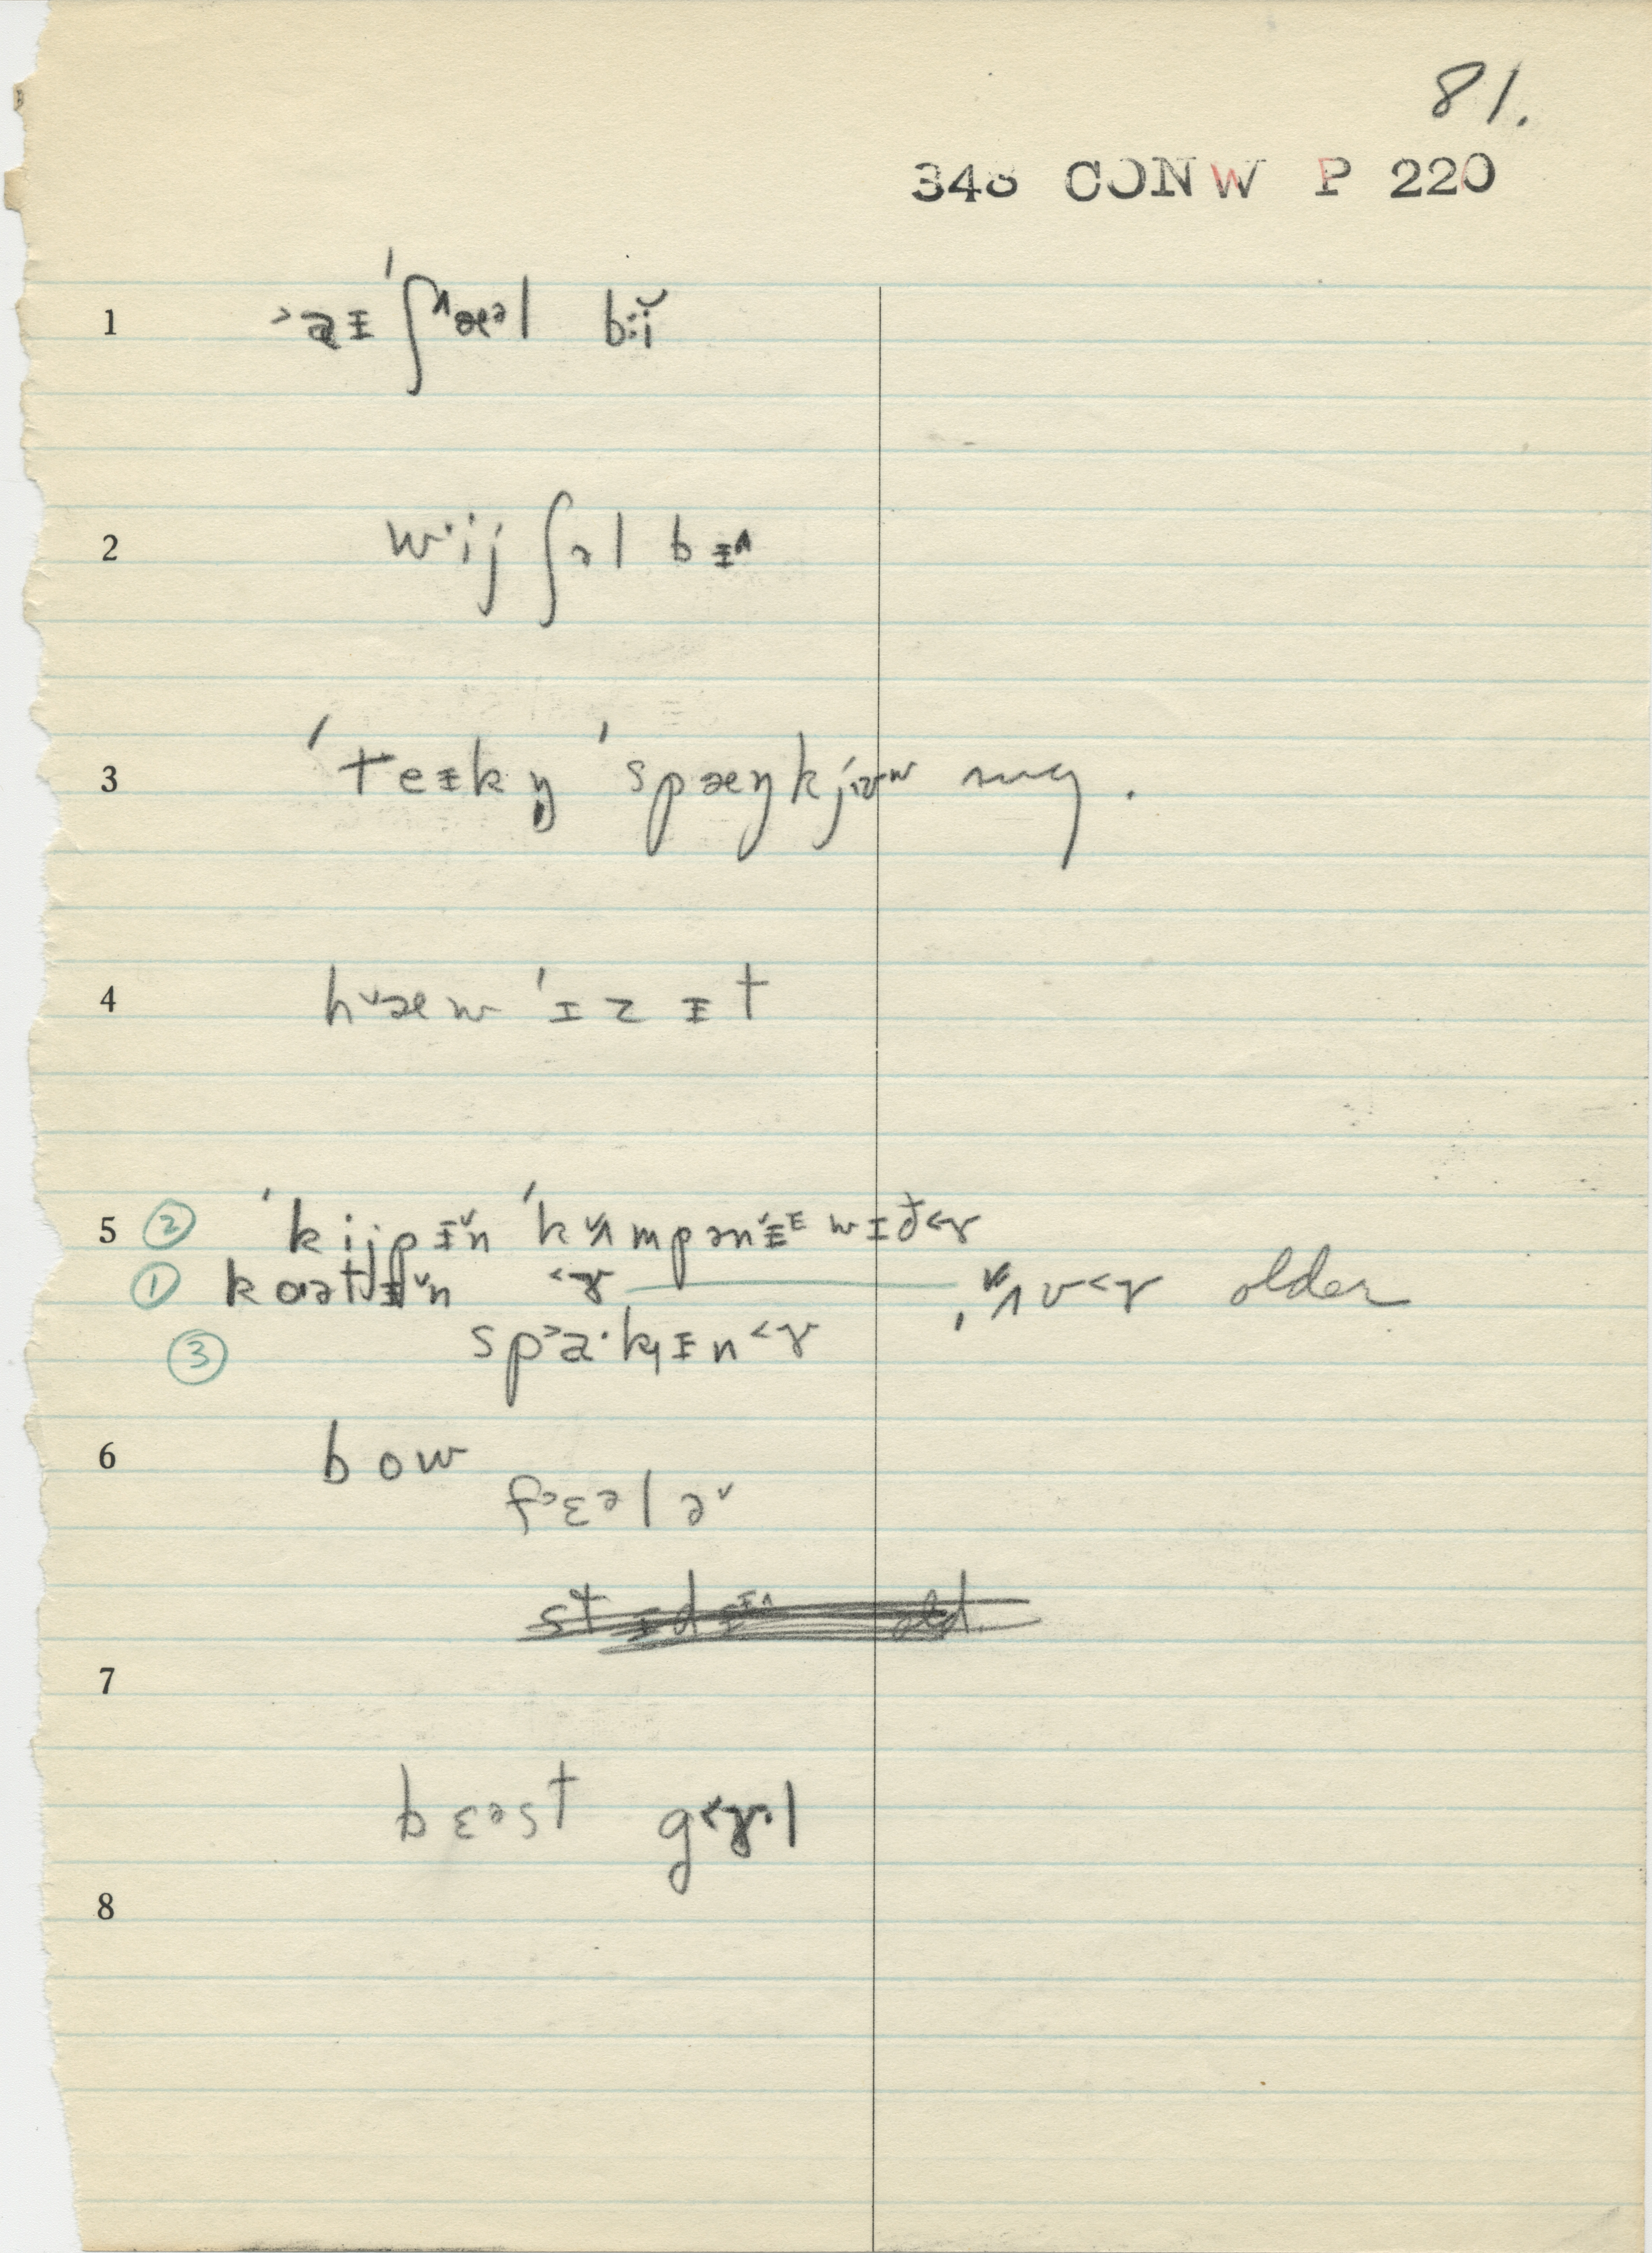 81.
348 CONW P 220
1 ˃aɪ ˈʃ˄æᵊl bi̇̆
2 w·ij ʃəl bɪ˄
3 ˈteɪkŋ̩ ˈspæŋkjʊw sug.
4 h˅æw ˈɪz ɪt
5 ② ˈkijpɪ˅n ˈk˅ʌmpənɪᴵ wɪð˂ɤ
① kɔətʃɪ˅n ˂ɤ ˌ˅ʌv˂ɤ older
③ sp˃a·kɪn˂ɤ
6 bow
f˃ɛᵊlə˅
7
bɛᵊst g˂ɤ·l
8